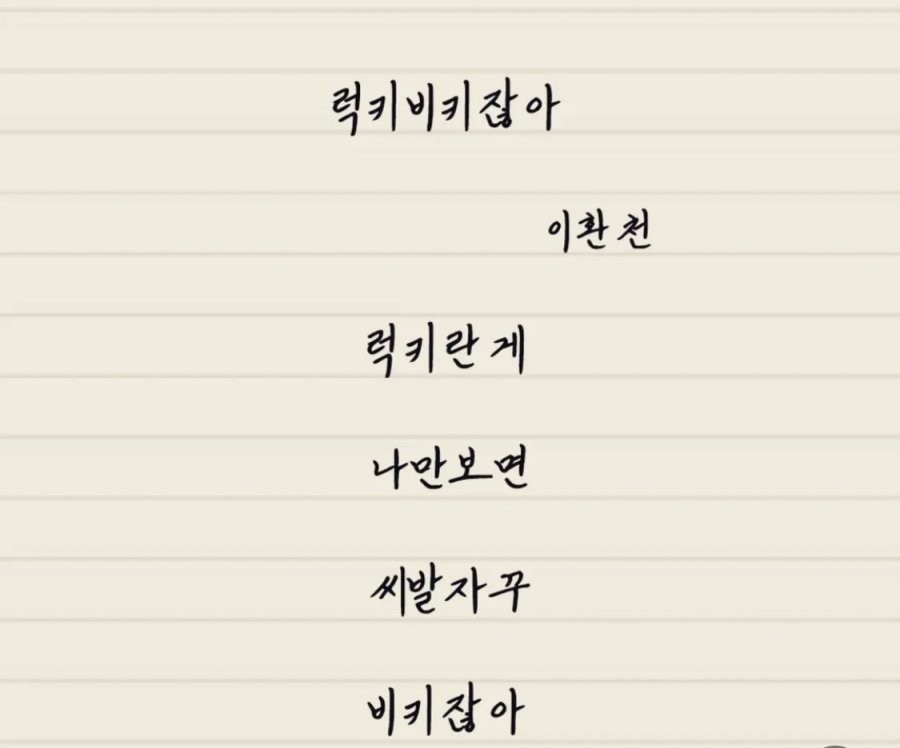 럭키비키잖아
이환천
럭키란 게
나만보면
씨발자꾸
비키잖아